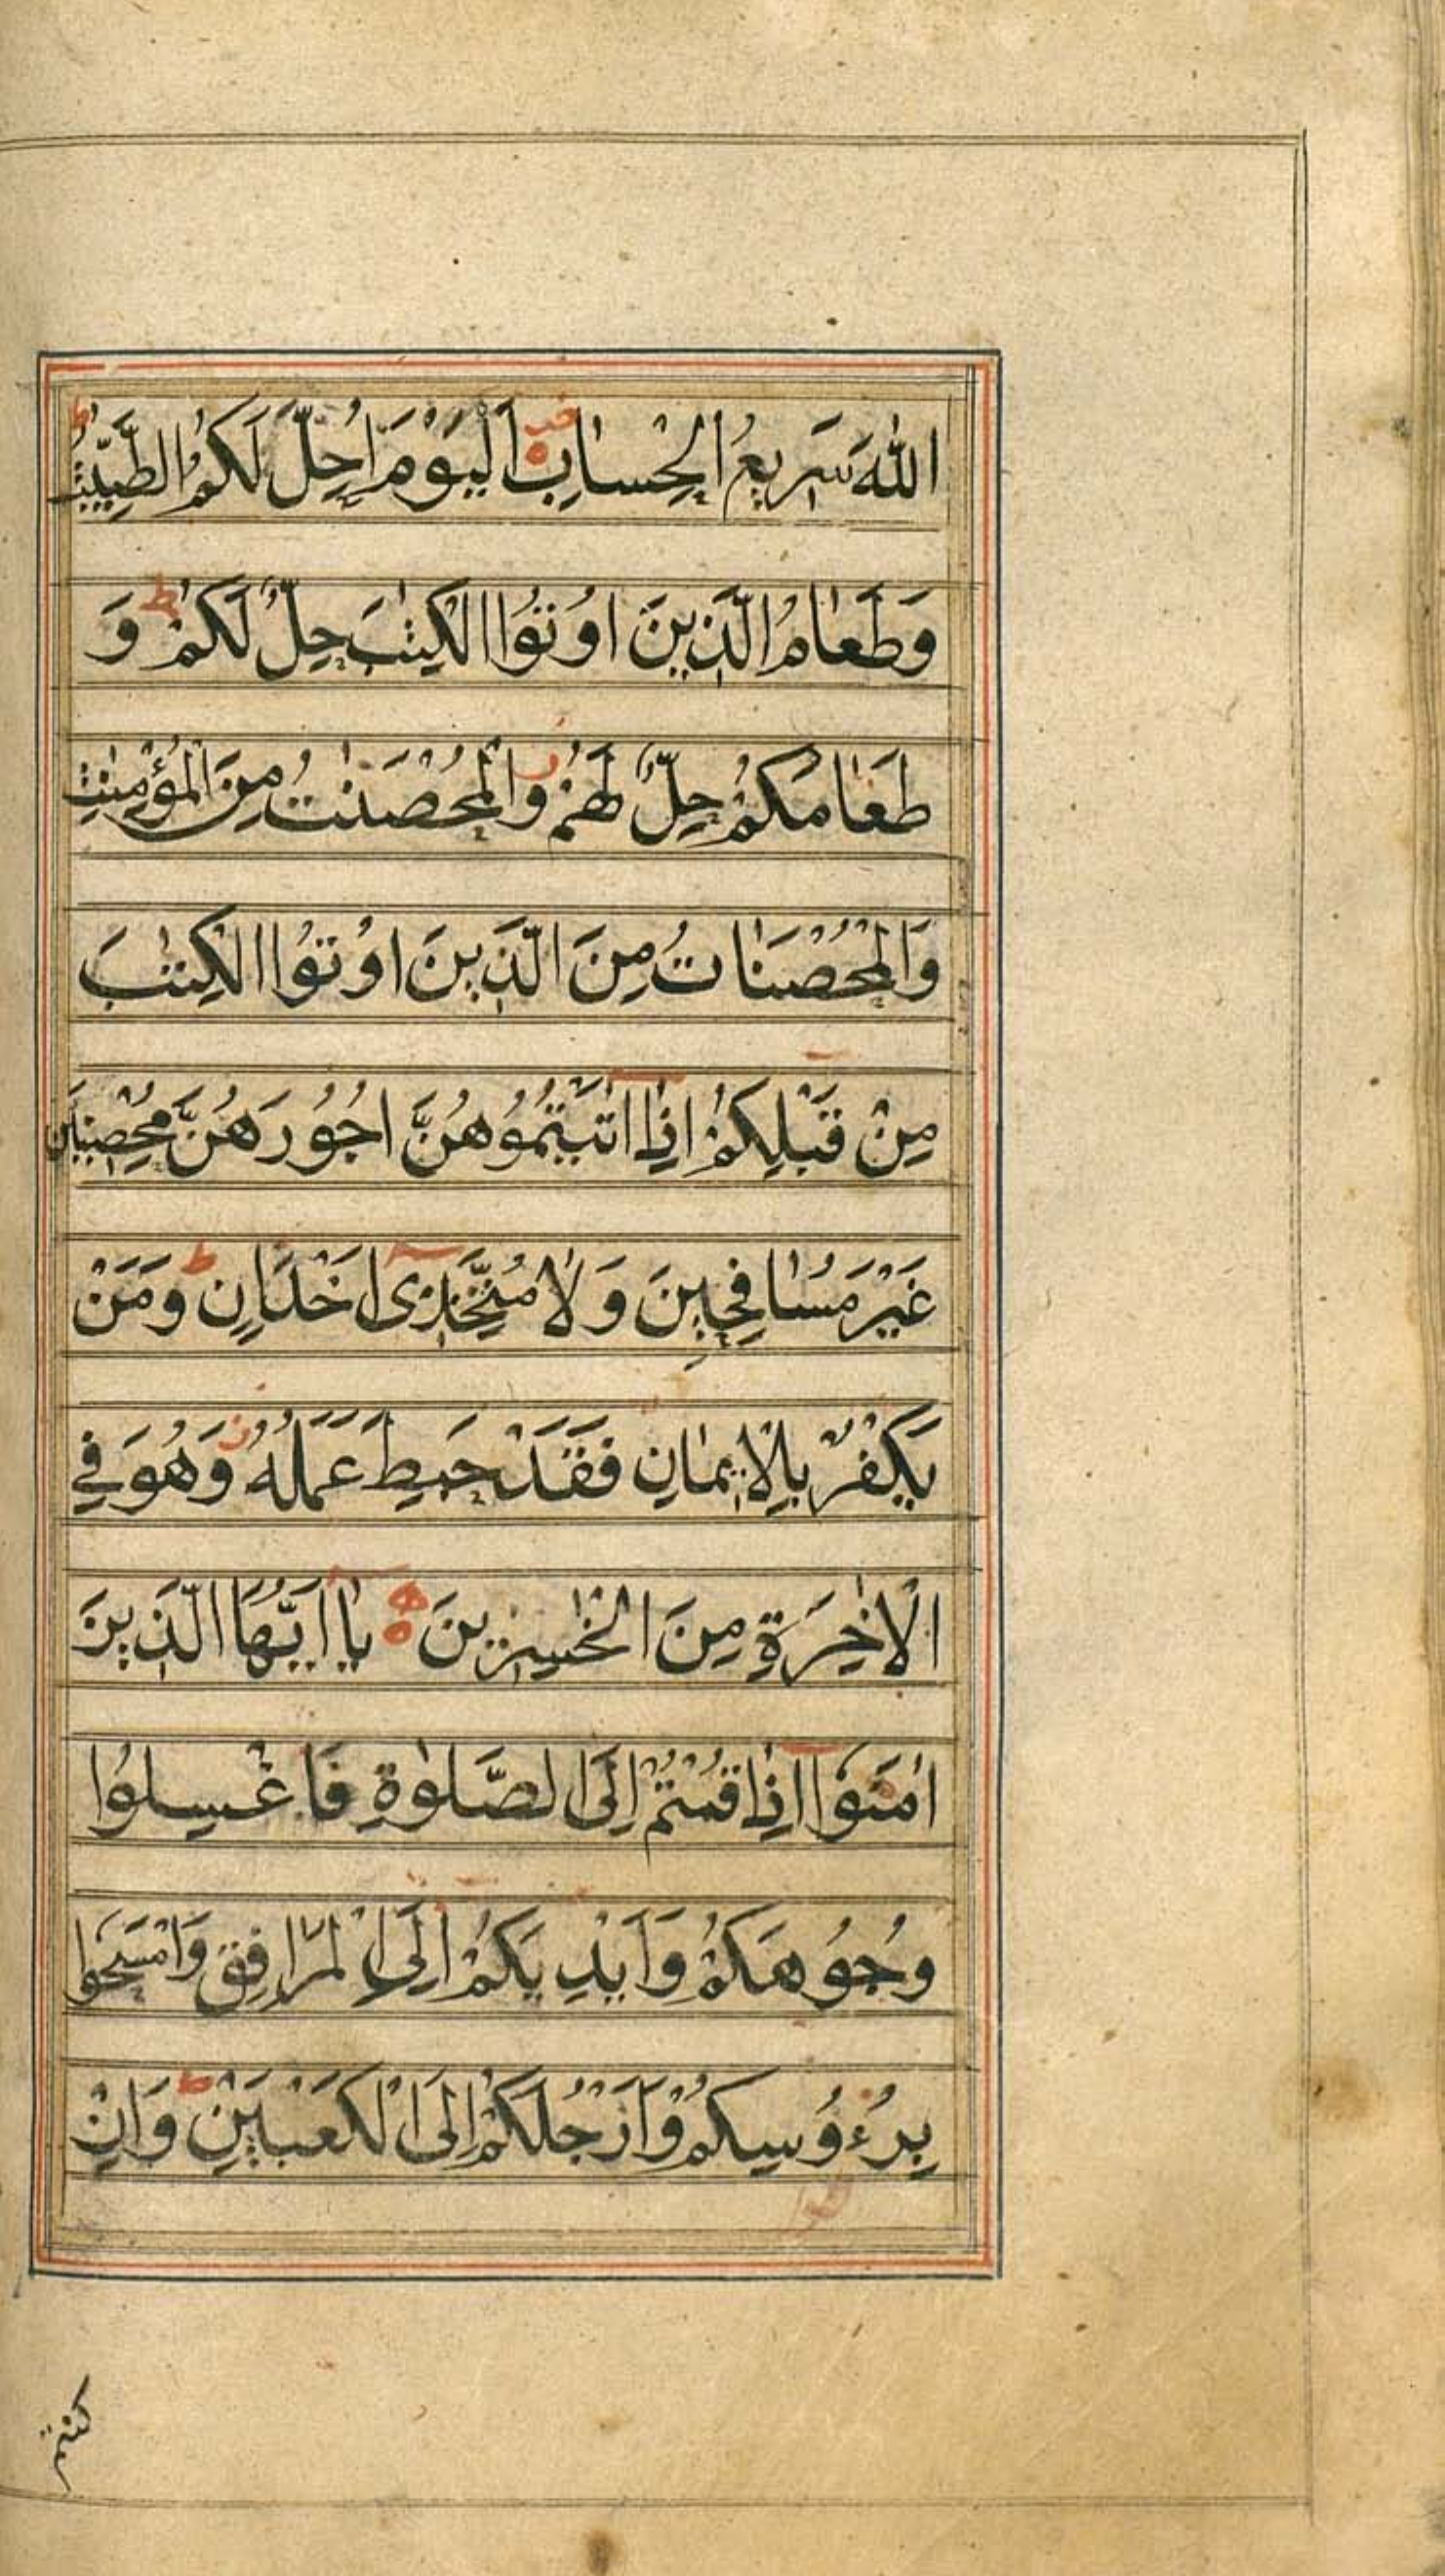 اللّٰهَ سَرِيعُ الْحِسٰابِ اَلْيَوْمَ اُحِلَّ لَكُمُ الطَّيِّبٰتُ ط
وَطَعٰامُ الَّذِينَ اُوتُوا الْكِتٰبَ حِلٌّ لَكُمْ ط وَ
طَعٰامُكُمْ حِلٌّ لَهُمْ وَالْمُحْصَنٰتُ مِنَ الْمُؤْمِنٰتِ
وَالْمُحْصَنٰاتُ مِنَ الَّذِينَ اُوتُوا الْكِتٰبَ
مِنْ قَبْلِكُمْ اِذٰا اٰتَيْتُمُوهُنَّ اُجُورَهُنَّ مُحْصِنِينَ
غَيْرَ مُسٰافِحِينَ وَلٰا مُتَّخِذِى اَخْدٰانٍ ط وَمَنْ
يَكْفُرْ بِالْاِيمٰانِ فَقَدْ حَبِطَ عَمَلُهُ وَهُوَ فِي
الْاٰخِرَةِ مِنَ الْخٰسِرِينَ يٰا اَيُّهَا الَّذِينَ
اٰمَنُوا اِذٰا قُمْتُمْ اِلَى الصَّلٰوةِ فَاغْسِلُوا
وُجُوهَكُمْ وَاَيْدِيَكُمْ اِلَى الْمَرٰافِقِ وَامْسَحُوا
بِرُءُوسِكُمْ وَاَرْجُلَكُمْ اِلَى الْكَعْبَيْنِ ط وَاِنْ
كنتم